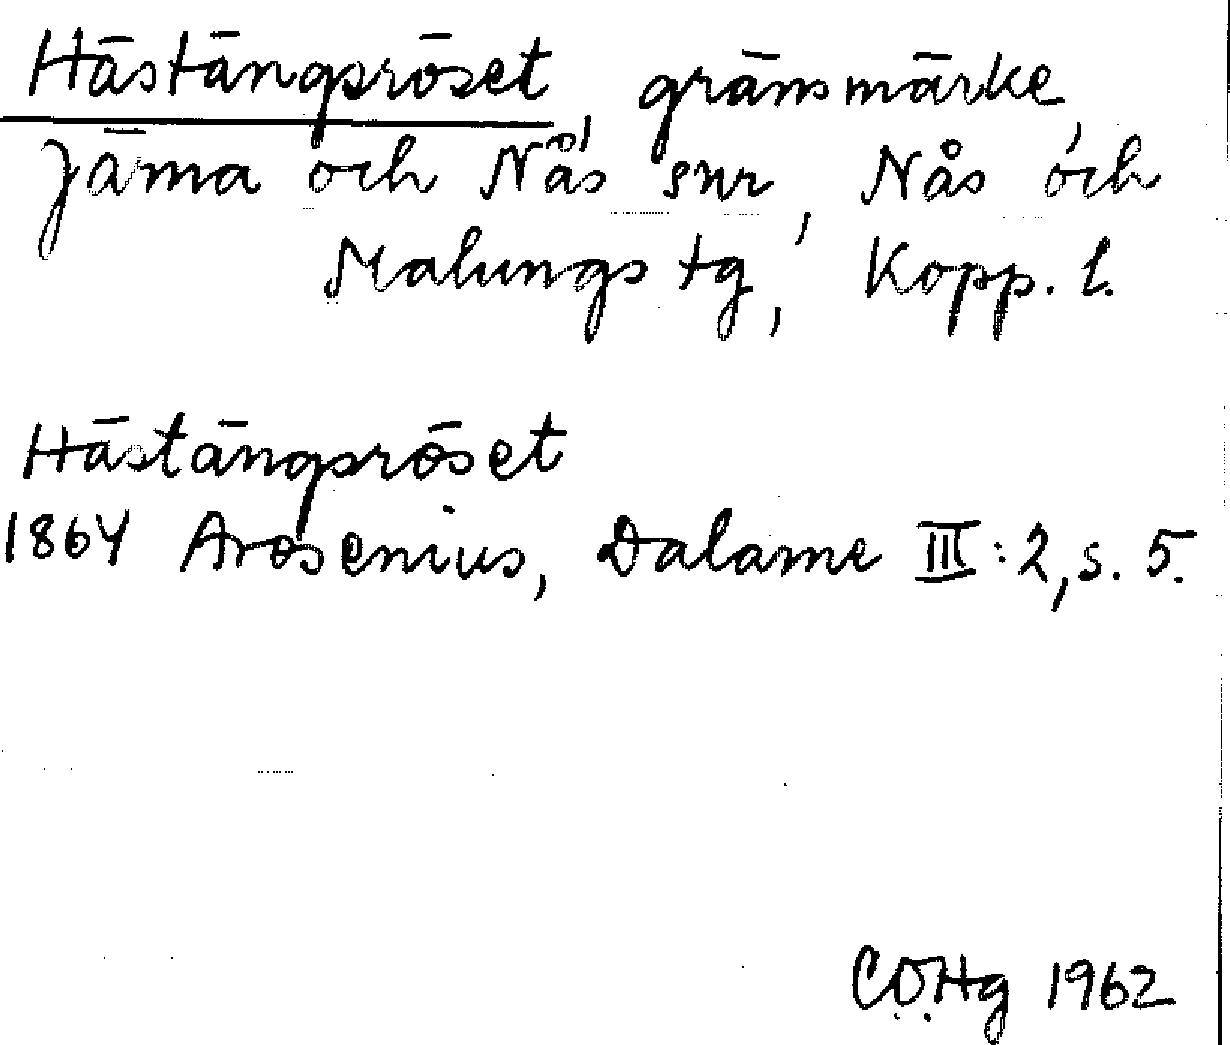 Hästängsröset, gränsmärke
Järna och Nås snr, Nås och
Malungs tg, Kopp. l.
Hästängsröset
1864 Arosenius, Dalarne III:2, s. 5.
C.O.Hg 1962